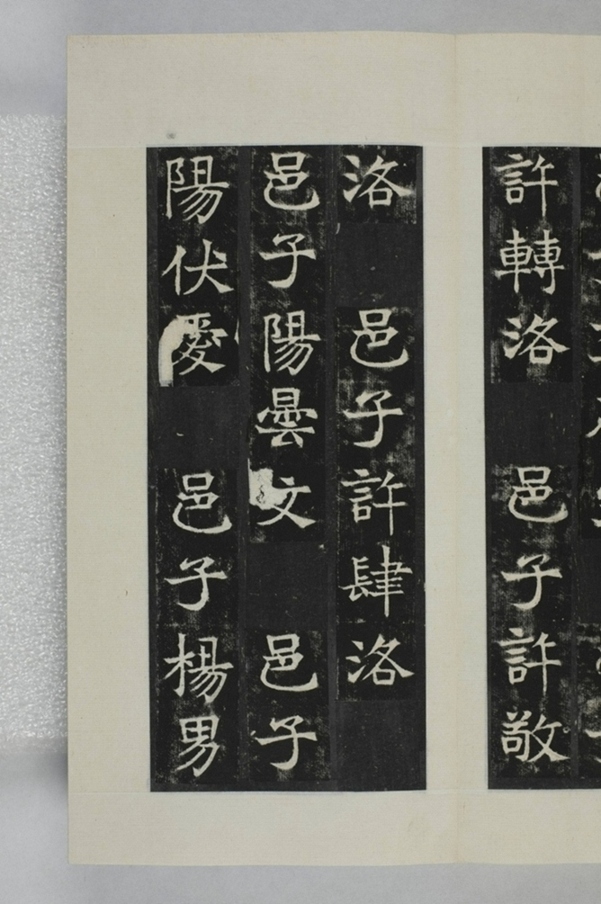 許轉洛 邑子許敬
洛 邑子許肆洛
邑子陽曇文 邑子
陽伏愛 邑子楊男